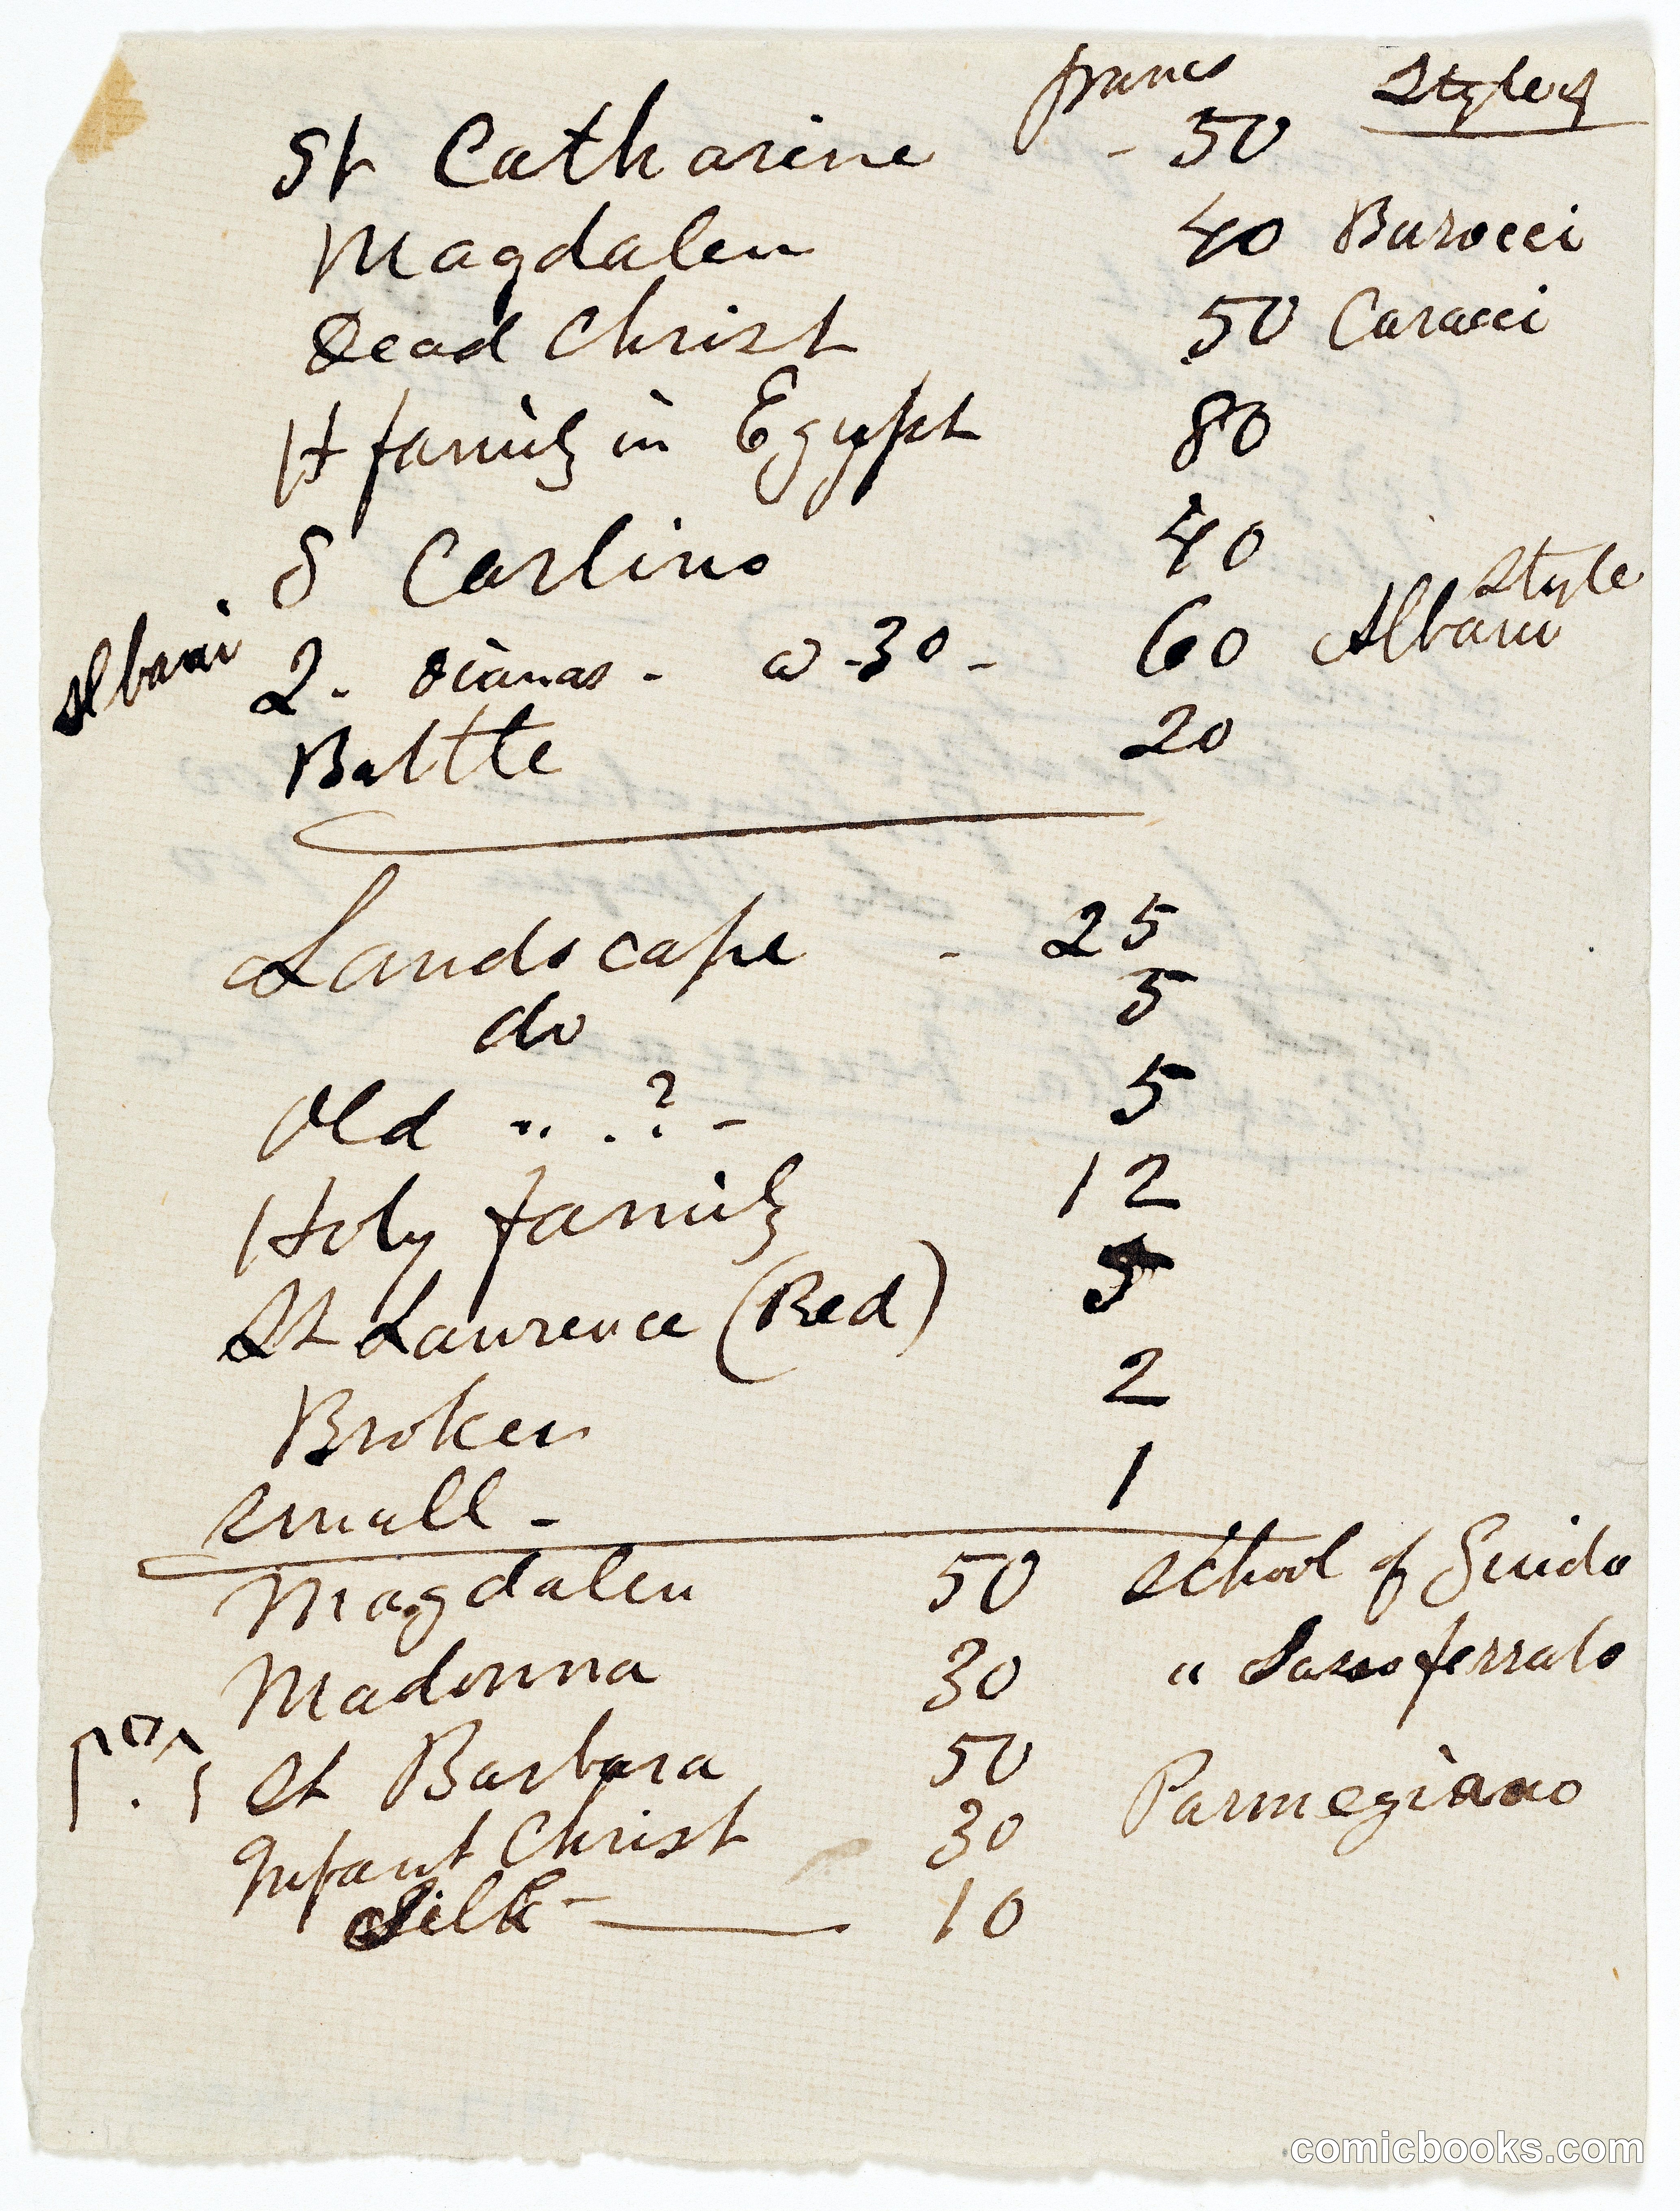 francs Style of
St Catharine - 50
Magdalen 40 Barocci
Dead Christ 50 Caracci
H family in Egypt 80
S Carlino 40
Style
Albani 2 - Dianas - @ 30 - 60 Albani
Battle 20
Landscape - 25
do 5
Old " .? - 5
Holy family 12
St Laurence (Red) 5
Broken 2
Small - 1
Magdalen 50 School of Guido
Madonna 30 " Sassoferrato
St Barbara 50 Parmegiano
Infant Christ 30
Silk - 10
comicbooks.com